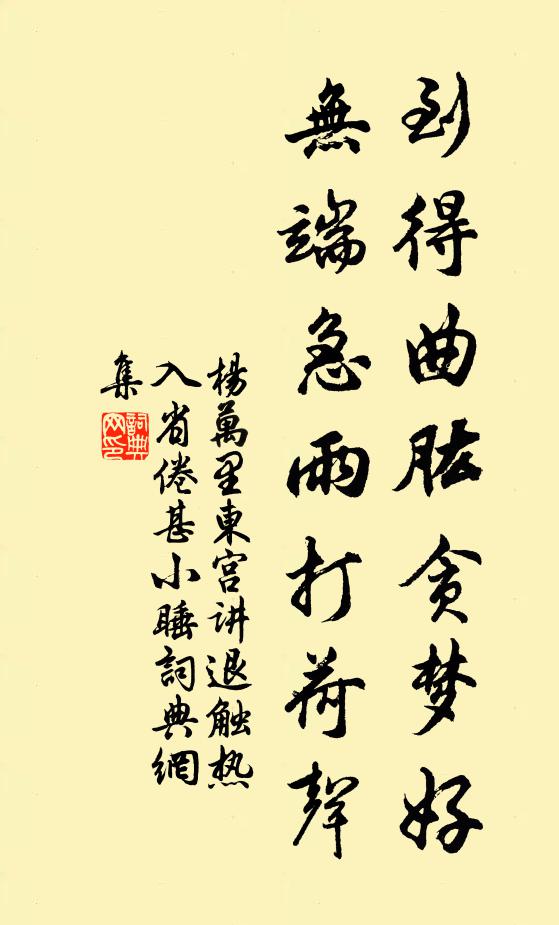 到得曲肱贪梦好
無端急雨打荷聲
楊萬里東宮讲退触热
入省倦甚小睡詞典網
集
詞典
网印